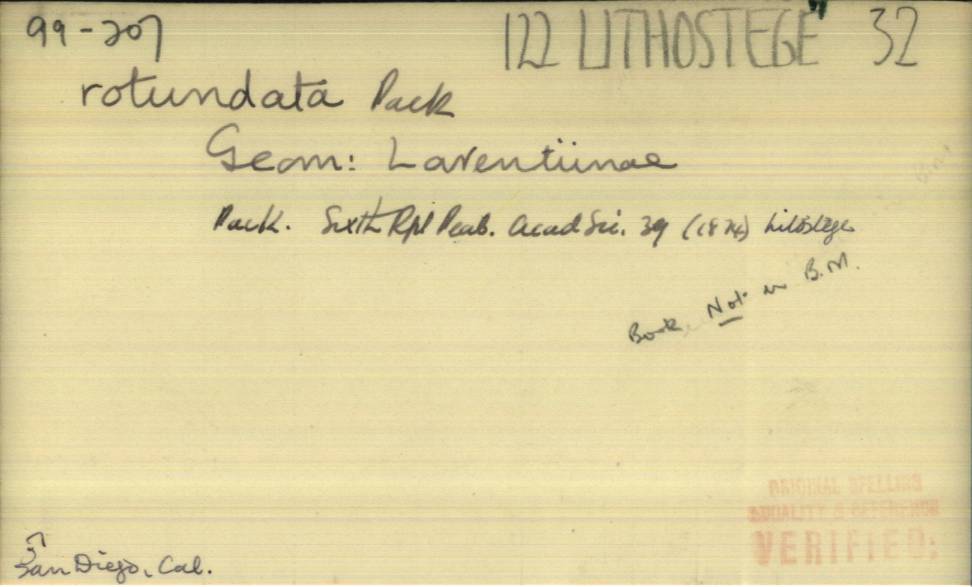 99-207
122 LITHOSTEGE 32
rotundata Pack
Geom: Larentiinae
Pack. Sixth Rpt Peab. Acad Sci. 39 (1874) Lithostege
Book Not in B.M.
ORIGINAL SPELLING
LOCALITY & REFERENCE
VERIFIED:
San Diego, Cal.